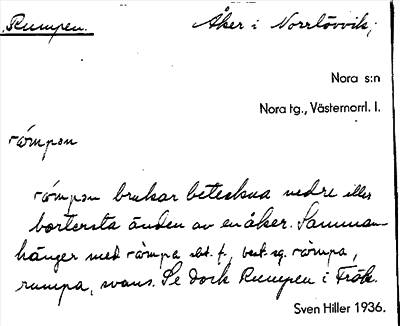 Rumpen. Åker i Norrlövvik;
Nora s:n
Nora tg., Västernorrl. l.
råmpən
råmpən brukar beteckna nedre eller
bortersta änden av en åker. Samman-
hänger med råmpa obt. f., best. sg. råmpa,
rumpa, svans. Se dock Rumpen i Frök.
Sven Hiller 1936.